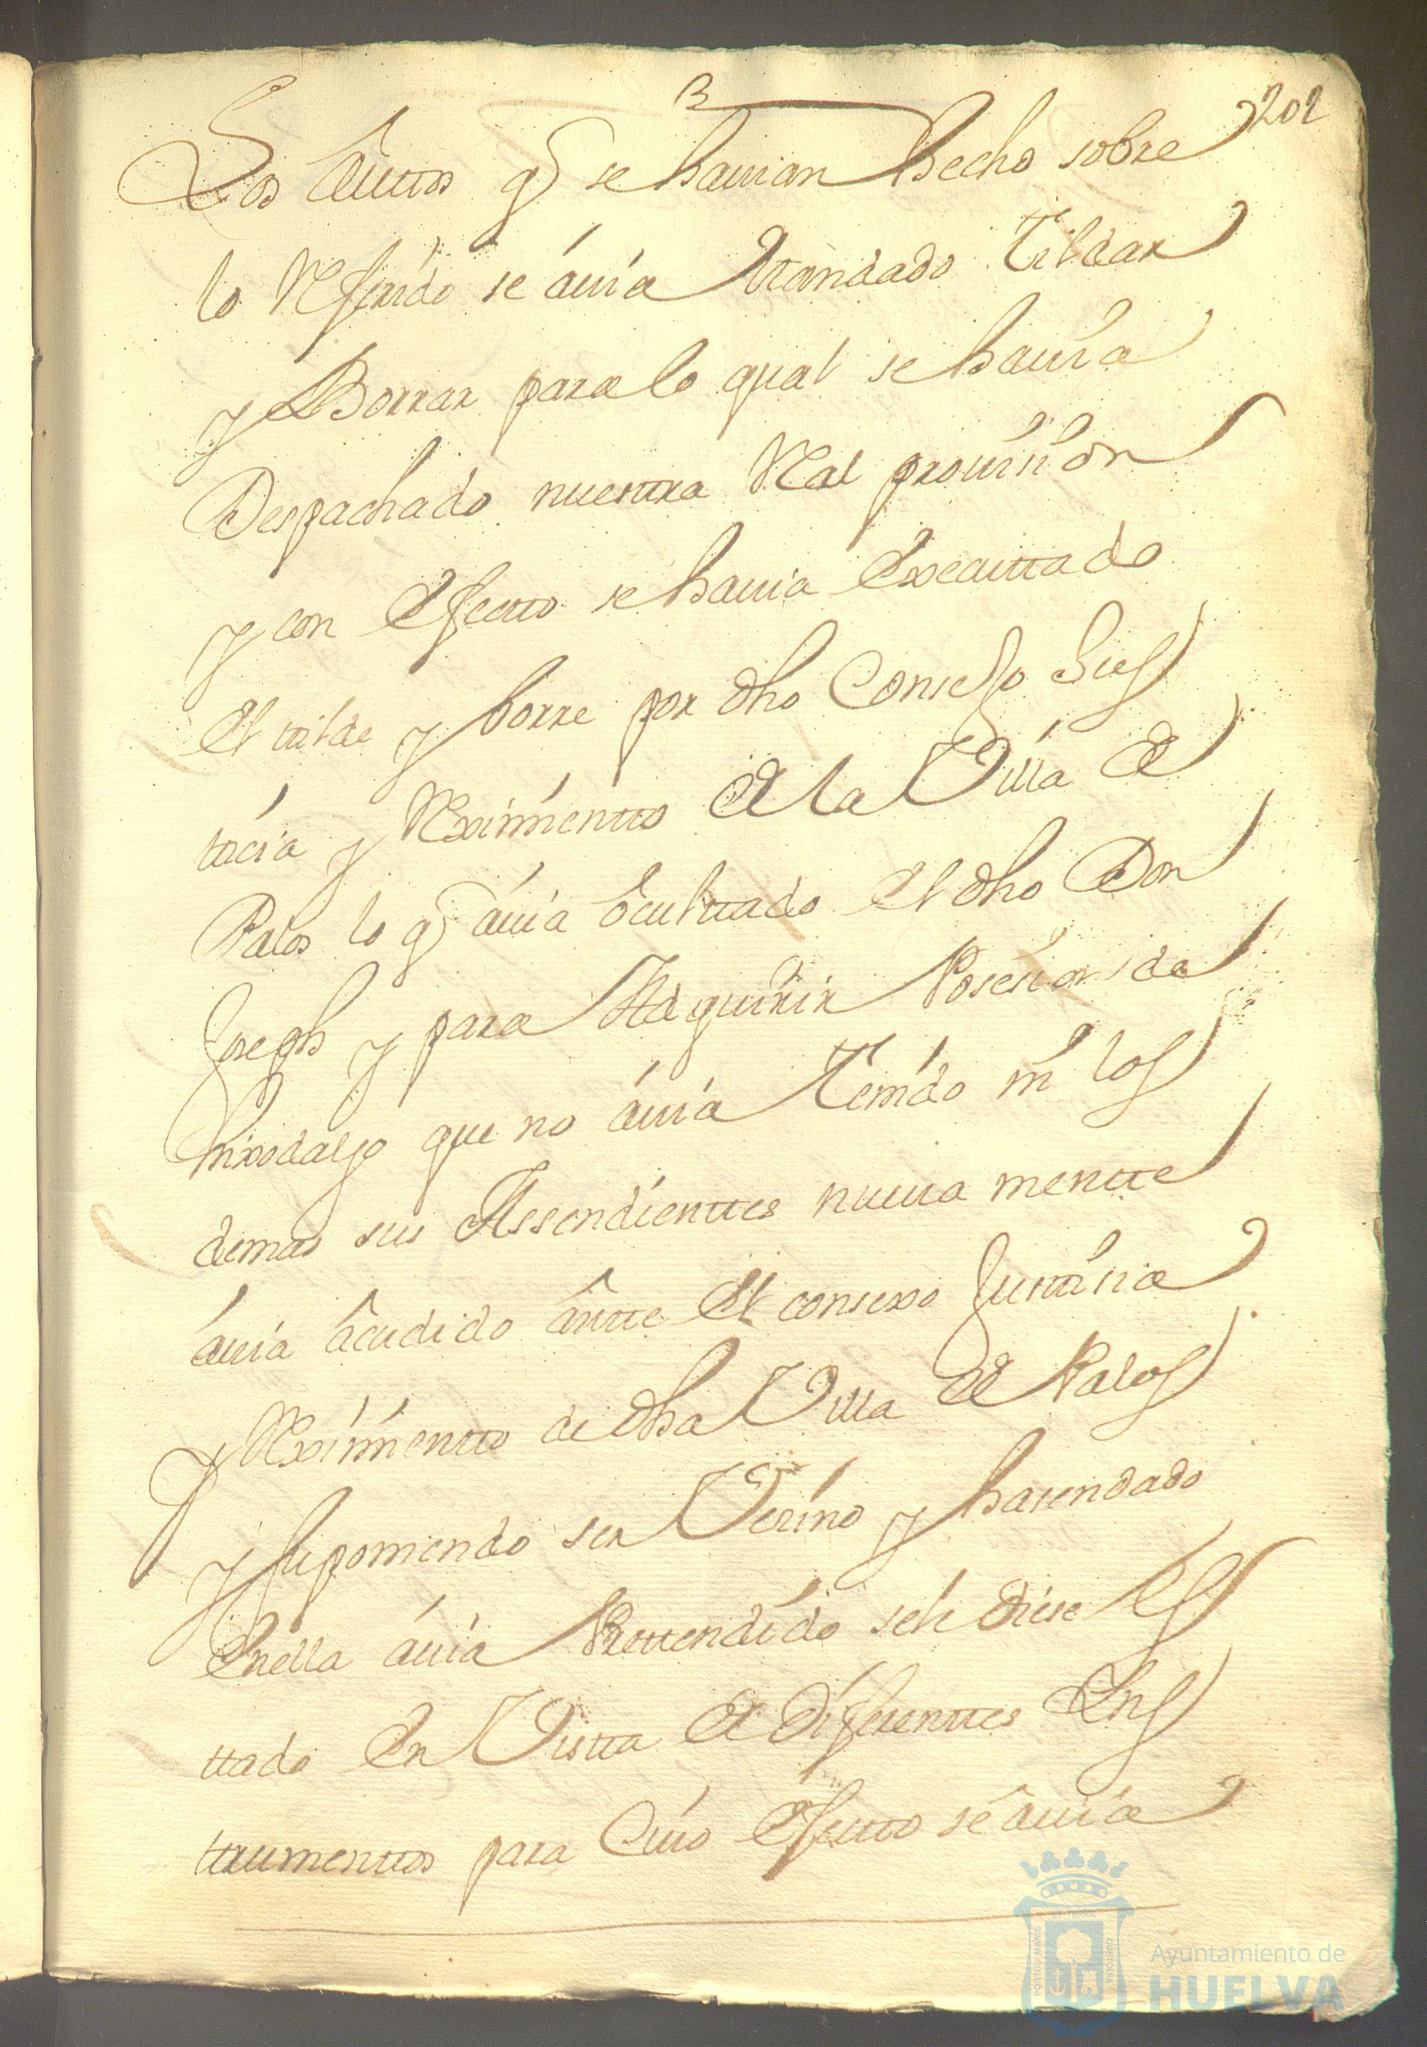 3
202
Los Autos q se hauian hecho sobre
lo Referido se áuia Mandado Tildar
y Borrar para lo qual se hauia
Despachado nuestra Real prouision
y con Efectto se hauia Executtado
El tilde y borre por dho Consejo Jus
ticia y Reximientto de la Villa de
Palos lo q áuia Ocultado El dho Don
Joseph y para Adquirir Posesion de
hixodalgo que no áuia Tenido ni los
demas sus Assendienttes nueua mentte
áuia âcudido ântte El consexo Justisia
y Reximientto de dha Villa de Palos
y suponiendo ser Vecino y hasendado
Enella áuia Prettendido sele diese Es
ttado En Vistta de diferenttes Ins
ttrumenttos para Cuio Efectto se âuia
Ayuntamiento de
HUELVA